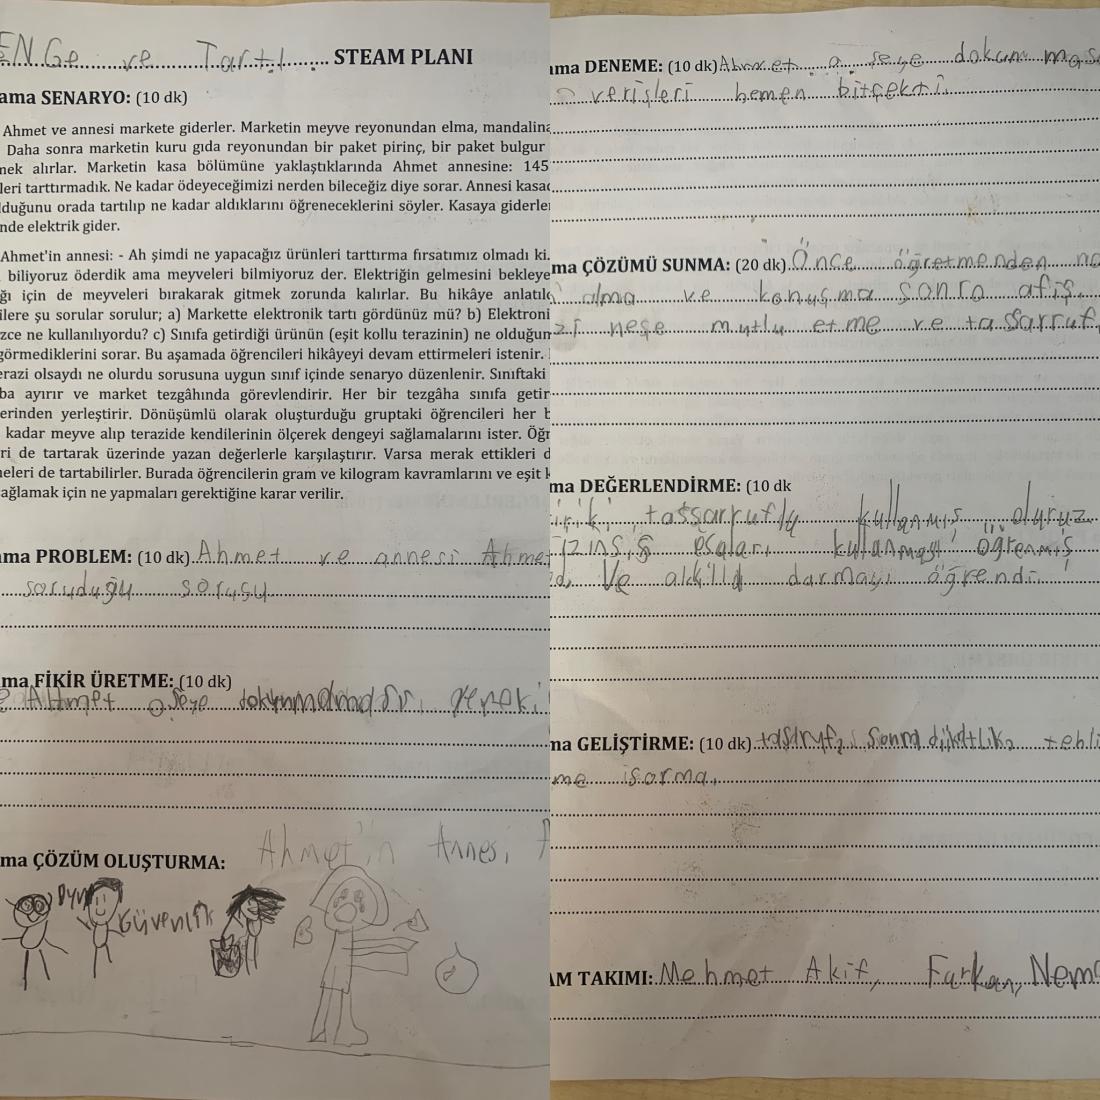 ENGe ve Tartı STEAM PLANI
ama SENARYO: (10 dk)
Ahmet ve annesi markete giderler. Marketin meyve reyonundan elma, mandalina
Daha sonra marketin kuru gıda reyonundan bir paket pirinç, bir paket bulgur
mek alırlar. Marketin kasa bölümüne yaklaştıklarında Ahmet annesine: 145
leri tarttırmadık. Ne kadar ödeyeceğimizi nerden bileceğiz diye sorar. Annesi kasad
lduğunu orada tartılıp ne kadar aldıklarını öğreneceklerini söyler. Kasaya giderler
nde elektrik gider.
Ahmet'in annesi: - Ah şimdi ne yapacağız ürünleri tarttırma fırsatımız olmadı ki.
biliyoruz öderdik ama meyveleri bilmiyoruz der. Elektriğin gelmesini bekleye
ğı için de meyveleri bırakarak gitmek zorunda kalırlar. Bu hikâye anlatılı
ilere şu sorular sorulur; a) Markette elektronik tartı gördünüz mü? b) Elektroni
zce ne kullanılıyordu? c) Sınıfa getirdiği ürünün (eşit kollu terazinin) ne olduğun
görmediklerini sorar. Bu aşamada öğrencileri hikâyeyi devam ettirmeleri istenir.
erazi olsaydı ne olurdu sorusuna uygun sınıf içinde senaryo düzenlenir. Sınıftaki
ba ayırır ve market tezgâhında görevlendirir. Her bir tezgâha sınıfa getir
erinden yerleştirir. Dönüşümlü olarak oluşturduğu gruptaki öğrencileri her b
kadar meyve alıp terazide kendilerinin ölçerek dengeyi sağlamalarını ister. Öğr
ri de tartarak üzerinde yazan değerlerle karşılaştırır. Varsa merak ettikleri d
neleri de tartabilirler. Burada öğrencilerin gram ve kilogram kavramlarını ve eşit k
ağlamak için ne yapmaları gerektiğine karar verilir.
ma PROBLEM: (10 dk) Ahmet ve annesi Ahme
soruduğu sorusu
ma FİKİR ÜRETME: (10 dk)
Ahmet o şeye dokunmaması gereki
ma ÇÖZÜM OLUŞTURMA:
Ahmet'in Annesi
Güvenlik
ma DENEME: (10 dk) Ahmet o şeye dokunmas
verişleri hemen bitçekti.
ma ÇÖZÜMÜ SUNMA: (20 dk) Önce öğretmenden
alma ve konuşma sonra afiş.
neşe mutlu etme ve tassarruf
ma DEĞERLENDİRME: (10 dk
tassarruflu kullanmış oluruz
izinsiş eşaları kullanmayı öğrenmiş
Ve akıllıd darmayı öğrendi
ma GELİŞTİRME: (10 dk) sonra tehli
me
AM TAKIMI: Mehmet Akif, Furkan,